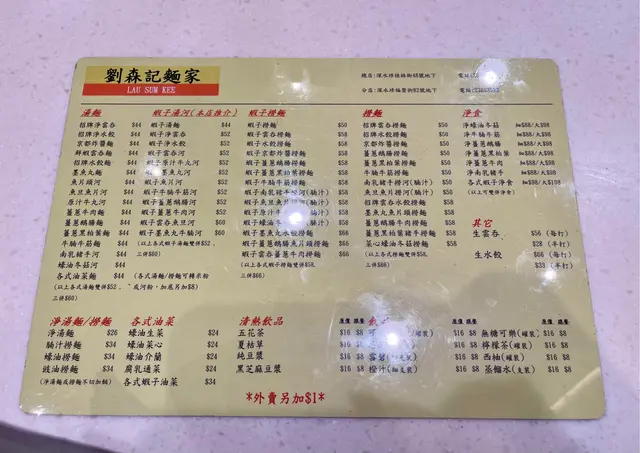 劉森記麵家
LAU SUM KEE
總店:深水埗桂林街48號地下
分店:深水埗福榮街82號地下
湯麵
招牌淨雲吞 $44
招牌淨水餃 $44
京都炸醬麵 $44
鮮蝦雲吞麵 $44
招牌水餃麵 $44
墨魚丸麵 $44
魚片頭河 $44
魚旦魚片河 $44
原汁牛丸河 $44
薑蔥牛肉麵 $44
薑蔥鵝腸麵 $44
薑蔥黑柏葉麵 $44
牛腩牛筋麵 $44
南乳豬手河 $44
蠔油冬菇河 $44
各式油菜麵 $44
(以上各式湯麵雙併$52,
三併$60)
(各式湯麵/撈麵可轉米粉
或河粉,加底另加$8)
蝦子湯河(本店推介)
蝦子湯麵 $44
蝦子淨雲吞 $52
蝦子淨水餃 $52
蝦子雲吞河 $52
蝦子原汁牛丸河 $52
蝦子墨魚丸河 $52
蝦子魚片河 $52
蝦子牛腩牛筋河 $52
蝦子薑蔥鵝腸河 $52
蝦子薑蔥牛肉河 $52
蝦子雲吞魚旦河 $60
蝦子墨魚丸牛腩河 $60
(以上各式蝦子湯麵雙併$52,
三併$60)
蝦子撈麵
蝦子撈麵 $50
蝦子雲吞撈麵 $58
蝦子水餃撈麵 $58
蝦子京都炸醬撈麵 $58
蝦子薑蔥鵝腸撈麵 $58
蝦子薑蔥黑柏葉撈麵 $58
蝦子牛腩牛筋撈麵 $58
蝦子南乳豬手撈河(腩汁) $58
蝦子蠔油冬菇撈河
蝦子墨魚丸水餃撈麵
蝦子薑蔥鵝腸魚片撈麵 $66
蝦子雲吞薑蔥鵝腸撈麵 $66
(以上各式蝦子撈麵雙併$58,
三併$66)
撈麵
招牌雲吞撈麵 $50
招牌水餃撈麵 $50
京都炸醬撈麵 $50
薑蔥鵝腸撈麵 $50
薑蔥黑柏葉撈麵 $50
南乳豬手撈河(腩汁) $50
牛腩牛筋撈河(腩汁) $50
蠔油冬菇撈麵 $50
魚旦墨魚丸撈麵 $58
薑蔥鵝腸牛肉撈麵 $58
薑蔥黑柏葉豬手撈麵 $58
菜心蠔油冬菇撈麵 $58
(以上各式撈麵雙併$58,
三併$66)
淨食
淨蠔油冬菇 細$88/大$98
淨牛腩牛筋 細$88/大$98
淨薑蔥鵝腸 細$88/大$98
淨薑蔥黑柏葉 細$88/大$98
淨薑蔥牛肉 細$88/大$98
淨南乳豬手 細$88/大$98
各式蝦子淨食 細$88/大$98
(以上可雙併淨食)
其它
生雲吞 $56 (每打)
$28 (半打)
生水餃 $66 (每打)
$33 (半打)
淨湯麵/撈麵
淨湯麵 $26
腩汁撈麵 $34
蠔油撈麵 $34
豉油撈麵 $34
(淨湯麵或撈麵不切加餸)
各式油菜
蠔油生菜 $24
蠔油菜心 $24
蠔油介蘭 $24
腐乳通菜 $24
各式蝦子油菜 $34
清熱飲品 原價 跟餐
五花茶 $16 $8
夏枯草 $16 $8
純豆漿 $16 $8
黑芝麻豆漿 $16 $8
飲 原價 跟餐
可 (罐裝) $16 $8
雪碧 $16 $8
橙汁(細支裝) $16 $8
無糖可樂(罐裝) $16 $8
檸檬茶(罐裝) $16 $8
西柚(罐裝) $16 $8
蒸餾水(支裝) $16 $8
*外賣另加$1*